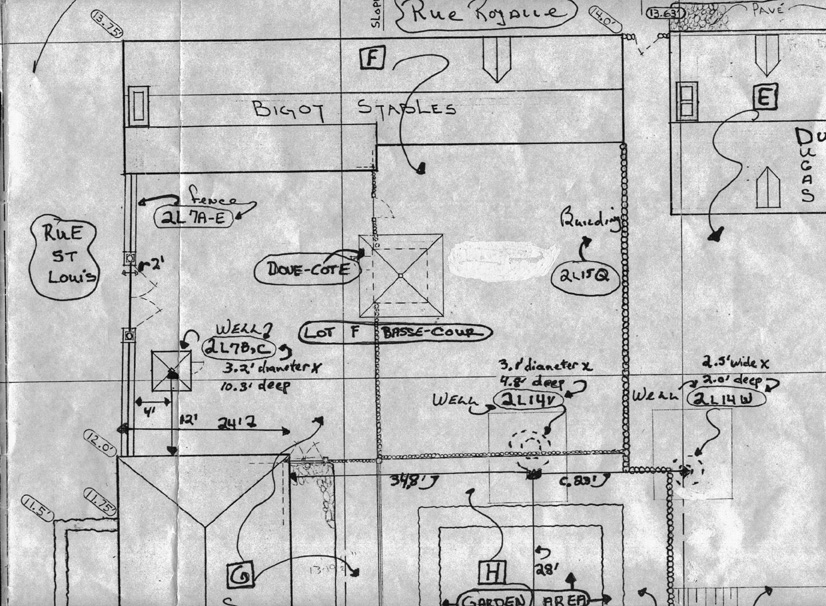 SLOP
RUE ROYALLE
13.75'
14.0'
13.63'
PAVÉ
F
E
BIGOT STABLES
DUGAS
fence
2L7A-E
RUE
ST
LOUIS
2'
DOVE-COTE
Building
2L15Q
WELL?
2L7B,C
3.2' diameter x
10.3' deep
LOT F BASSE-COUR
3.1' diameter x
4.8' deep
WELL 2L14V
2.5' wide x
2.0' deep
WELL 2L14W
4'
12'
24'
12.0'
34.8'
C.23'
11.5'
11.75'
G
H
28'
GARDEN AREA